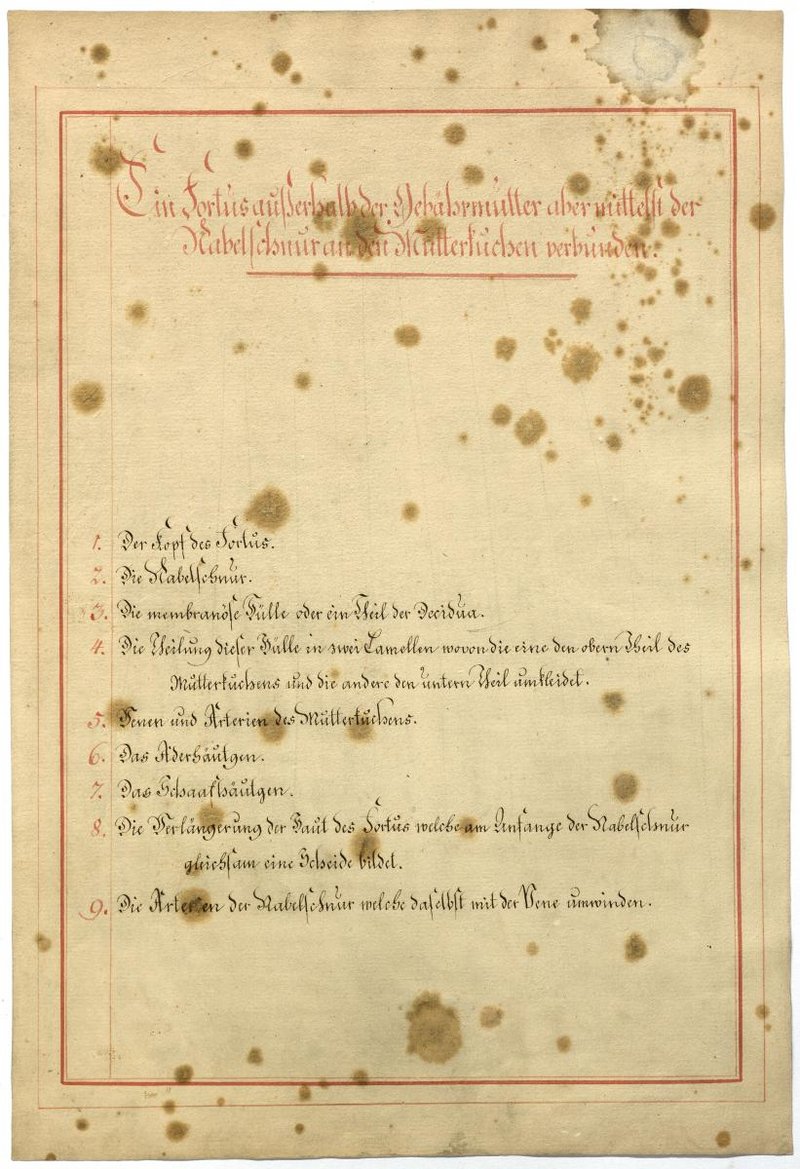 Ein Förtus außerhalb der Gebährmutter aber mittelst der
Nabelschnur an den Mutterkuchen verbunden.
1. Der Kopf des Förtus.
2. Die Nabelschnur.
3. Die membranöse Hülle oder ein Theil der Decidua.
4. Die Theilung dieser Hülle in zwei Lamellen wovon die eine den obern Theil des
Mutterkuchens und die andere den untern Theil umkleidet.
5. Venen und Arterien des Mutterkuchens.
6. Das Aderhäutgen.
7. Das Schaafshäutgen.
8. Die Verlängerung der Haut des Förtus welche am Anfange der Nabelschnur
gleichsam eine Scheide bildet.
9. Die Arterien der Nabelschnur welche daselbst mit der Vene umwinden.